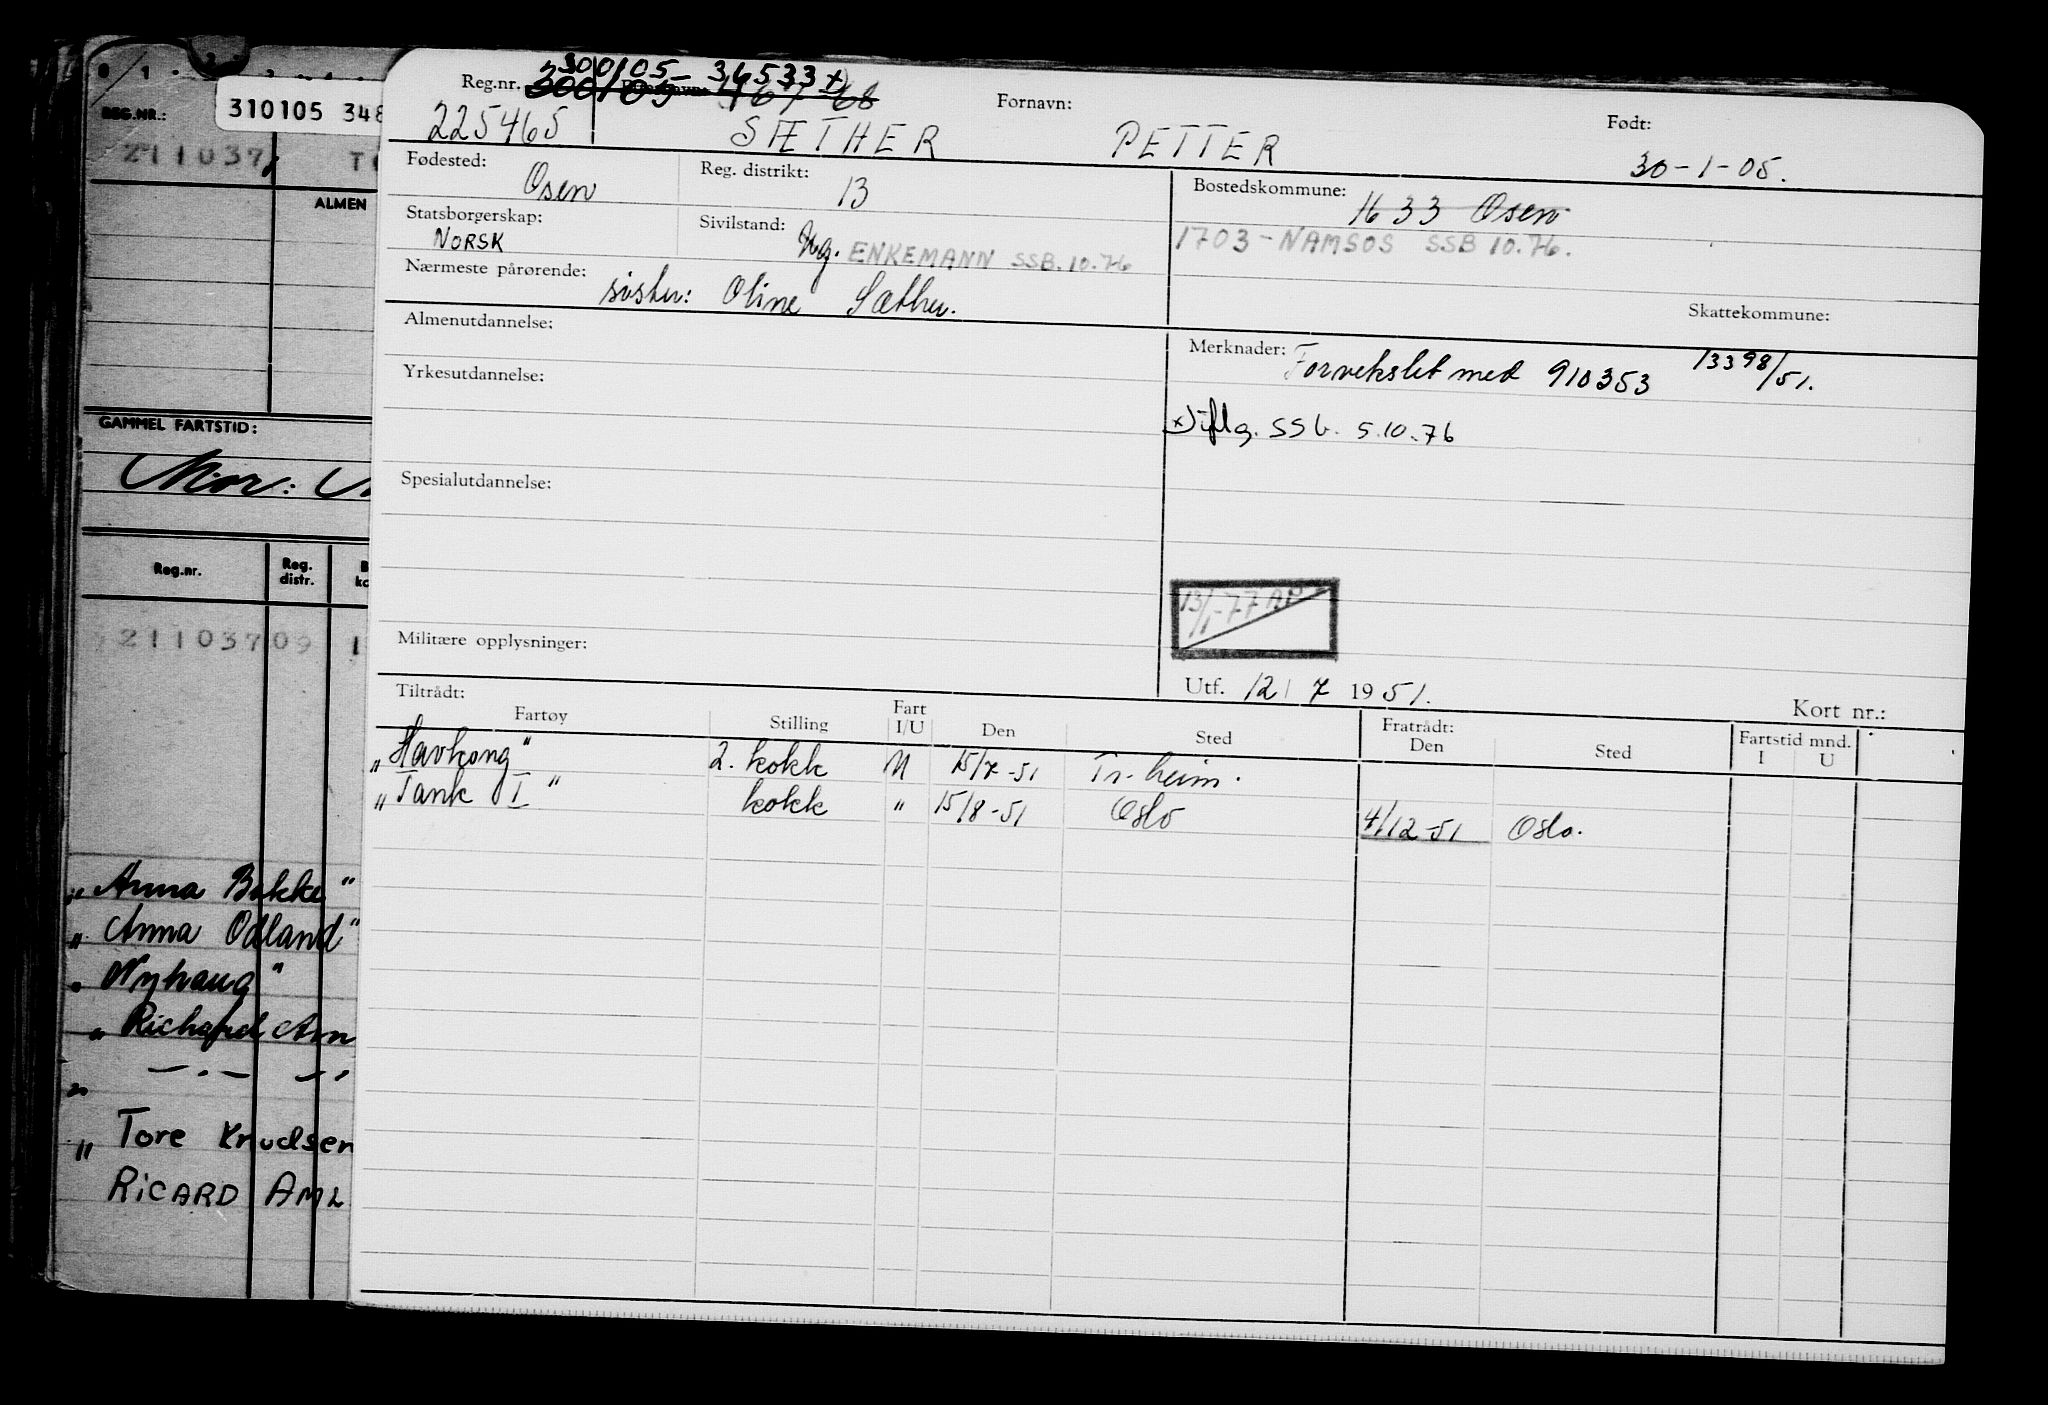 300105-34533 x)
Reg.nr.
Fornavn:
Født:
225465 SÆTHER PETTER 30-1-05.
Fødested: Osen Reg. distrikt: 13 Bostedskommune: 1633 Osen
Statsborgerskap: NORSK Sivilstand: Ug. ENKEMANN SSB.10.76 1703-NAMSOS SSB 10.76.
Nærmeste pårørende: søster: Oline Sæther.
Skattekommune:
Almenutdannelse:
Merknader: Forvekslet med 910353 13398/51.
Yrkesutdannelse:
x) iflg. SSb. 5.10.76
Spesialutdannelse:
13/1-77 AP
Militære opplysninger:
Utf. 12/7 1951. Kort nr.:
Tiltrådt: Fratrådt: Fartstid mnd.
Fartøy Stilling Fart I/U Den Sted Den Sted I U
"Havkong" 2. kokk U 15/7-51 Tr.heim.
"Tank I" kokk " 15/8-51 Oslo 4/12-51 Oslo.
310105 348
REG.NR.:
211037
ALMEN
GAMMEL FARTSTID:
Mor:
Reg.nr. Reg. distr.
21103709 1
"Anna Bakke"
"Anna Odland"
"Nyhaug"
"Richard Arn
" — . — " .
"Tore Knudsen
RICARD AML